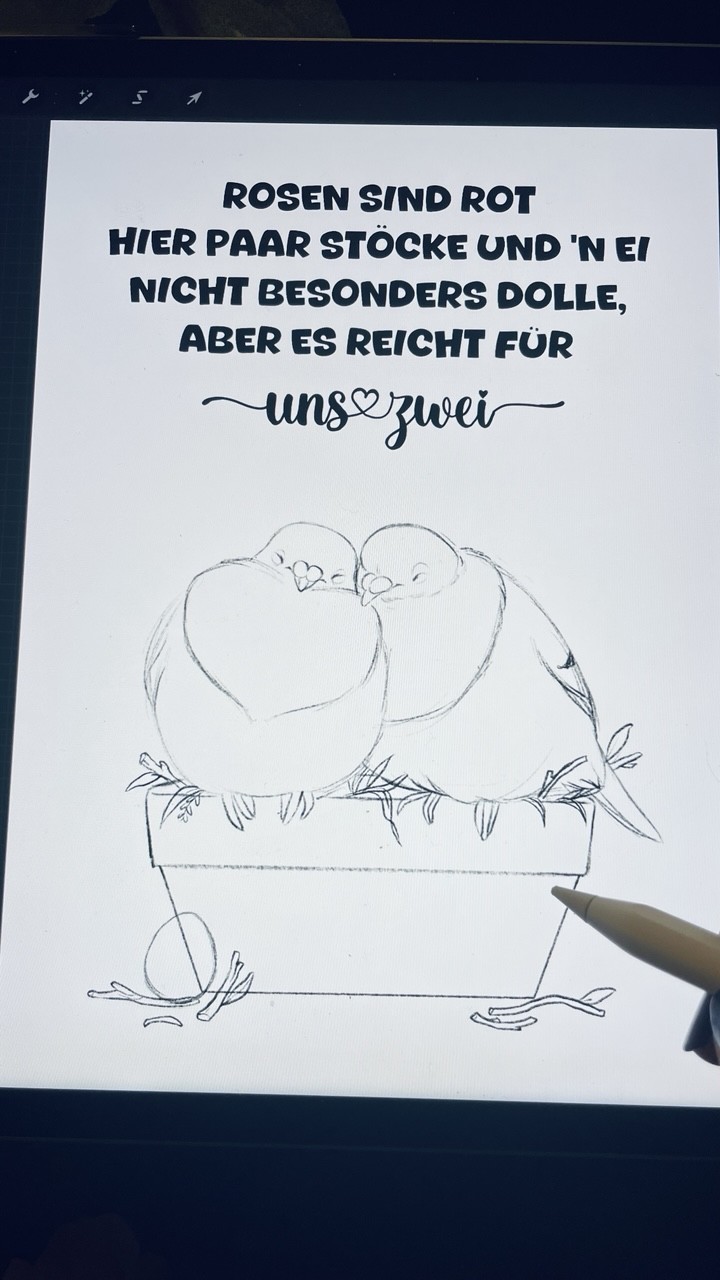 ROSEN SIND ROT
HIER PAAR STÖCKE UND 'N EI
NICHT BESONDERS DOLLE,
ABER ES REICHT FÜR
uns zwei